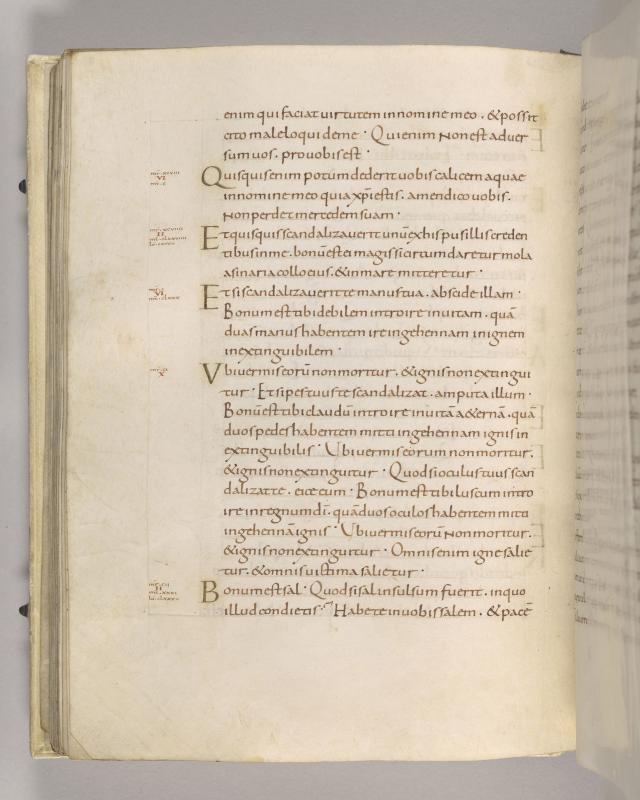 enim qui faciat uirtutem in nomine meo · & possit
cito male loqui de me · Qui enim Non est aduer
sum uos · pro uobis est ·
Quisquis enim potum dederit uobis calicem aquae
in nomine meo quia xp̄i estis · amen dico uobis ·
Non perdet mercedem suam ·
Et quisquis scandalizauerit unū ex his pusillis creden
tibus in me · bonū est ei magis si circumdaretur mola
asinaria collo eius · & in mare mitteretur ·
Et si scandalizauerit te manus tua · abscide illam ·
Bonum est tibi debilem introire in uitam · quā
duas manus habentem ire in gehennam in ignem
inextinguibilem ·
Vbi uermis eorū non moritur · & ignis non extingui
tur · Et si pes tuus te scandalizat · amputa illum ·
Bonū est tibi claudū introire in uitā aeternā · quā
duos pedes habentem mitti in gehennam ignis in
extinguibilis · Vbi uermis eorum non moritur ·
& ignis non extinguitur · Quod si oculus tuus scan
dalizat te · eice eum · Bonum est tibi luscum intro
ire in regnum dī · quā duos oculos habentem mitti
in gehennā ignis · Vbi uermis eorū Non moritur ·
& ignis non extinguitur · Omnis enim igne salie
tur · & omnis uictima salietur ·
Bonum est sal · Quod si sal insulsum fuerit · in quo
illud condietis · Habete in uobis salem · & pacē